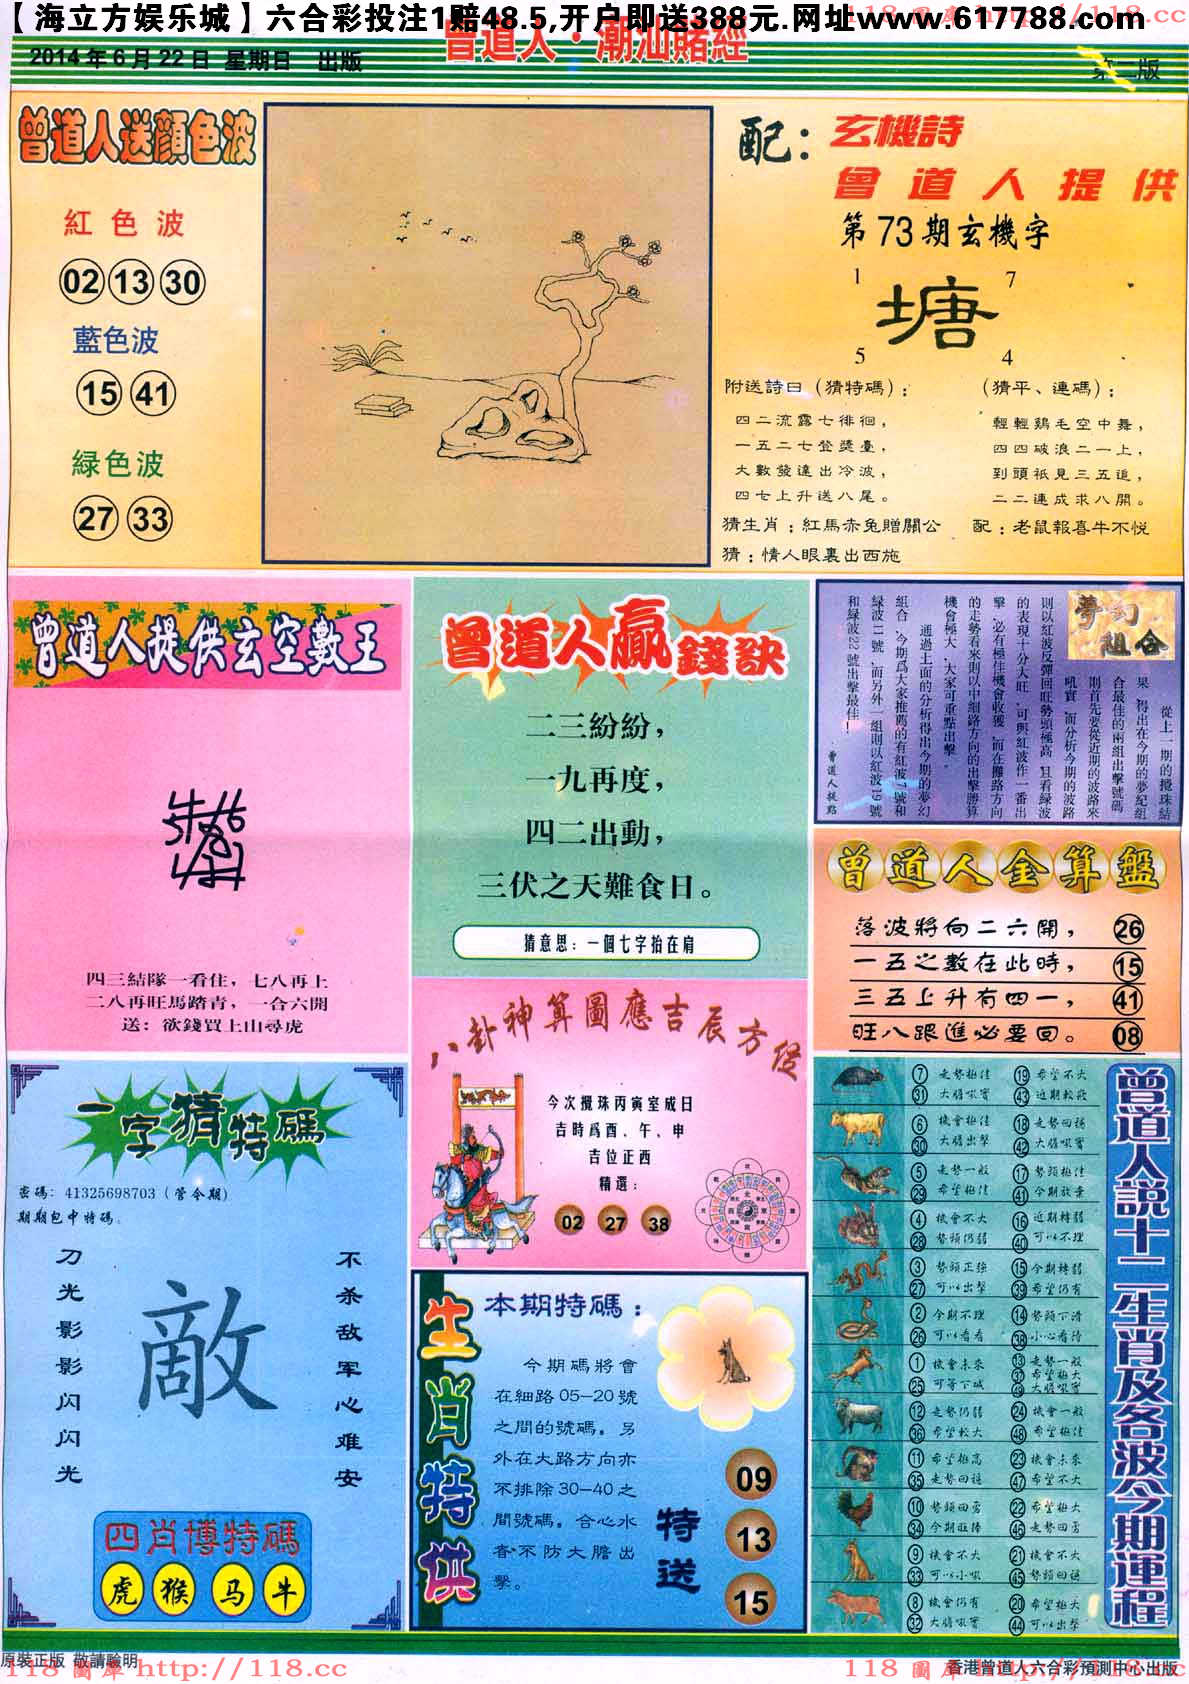 【海立方娱乐城】六合彩投注1赔48.5,开户即送388元.网址www.617788.com
118 圖庫 http://118.cc
曾道人·潮汕賭經
2014年6月22日 星期日 出版
第二版
曾道人送顔色波
紅色波
02 13 30
藍色波
15 41
緑色波
27 33
配：玄機詩
曾道人提供
第73期玄機字
1 7
塘
5 4
附送詩曰（猜特碼）：
四二流露七徘徊，
一五二七登獎臺，
大數發達出冷波，
四七上升送八尾。
（猜平、連碼）：
輕輕鷄毛空中舞，
四四破浪二一上，
到頭衹見三五追，
二二連成求八開。
猜生肖：紅馬赤兔贈關公
配：老鼠報喜牛不悦
猜：情人眼裏出西施
曾道人提供玄空數王
四三結隊一看住，七八再上
二八再旺馬踏青，一合六開
送：欲錢買上山尋虎
曾道人贏錢訣
二三紛紛，
一九再度，
四二出動，
三伏之天難食日。
猜意思：一個七字抬在肩
夢幻組合
從上一期的攪珠結
果,得出在今期的夢紀組
合最佳的兩組出擊號碼
則首先要從近期的波路來
吼實,而分析今期的波路
則以紅波反彈回旺勢頭極高,且看緑波
的表現十分大旺,可與紅波作一番出
擊,必有極佳機會收獲,而在攤路方向
的走勢看來則以中細路方向的出擊勝算
機會極大,大家可重點出擊。
通過上面的分析得出今期的夢幻
組合,今期爲大家推薦的有紅波7號和
緑波11號,而另外一組則以紅波19號
和緑波22號出擊最佳！
曾道人提點
曾道人金算盤
落波將向二六開， 26
一五之數在此時， 15
三五上升有四一， 41
旺八跟進必要回。 08
八卦神算圖應吉辰方從
今次攪珠丙寅室成日
吉時爲酉、午、申
吉位正西
精選：
02 27 38
一字猜特碼
密碼：41325698703（管令期）
期期包中特碼.
刀光影影闪闪光
敵
不杀敌军心难安
四肖博特碼
虎 猴 马 牛
生肖特供
本期特碼：
今期碼將會
在細路05-20號
之間的號碼。另
外在大路方向亦
不排除30-40之
間號碼。合心水
者不防大膽出
擊。
特送
09
13
15
曾道人説十二生肖及各波今期運程
7 走勢極佳 19 希望不大
31 大膽吼實 43 近期較飛
6 機會極佳 18 走勢回穩
30 大膽出擊 42 大膽吼實
5 走勢一般 17 勢頭極佳
29 希望極佳 41 今期放棄
4 機會不大 16 近期轉弱
28 勢頭仍弱 40 可以不理
3 勢頭正強 15 今期轉弱
27 可以出擊 39 希望仍有
2 今期不理 14 勢頭下滑
26 可以看看 38 小心看待
1 機會未來 13 走勢一般
25 可等下城 37 希望極大
49 大膽吼實
12 走勢仍弱 24 機會一般
36 希望較大 48 希望極佳
11 希望極高 23 機會未來
35 走勢回穩 47 希望不大
10 勢頭回勇 22 希望極大
34 今期放棒 46 走勢回勇
9 機會不大 21 機會不大
33 可以小吼 45 勢頭回穩
8 機會仍有 20 希望極大
32 大膽吼實 44 可以出擊
原裝正版 敬請驗明
118 圖庫 http://118.cc
香港曾道人六合彩預測中心出版
118 圖庫 http://118.cc